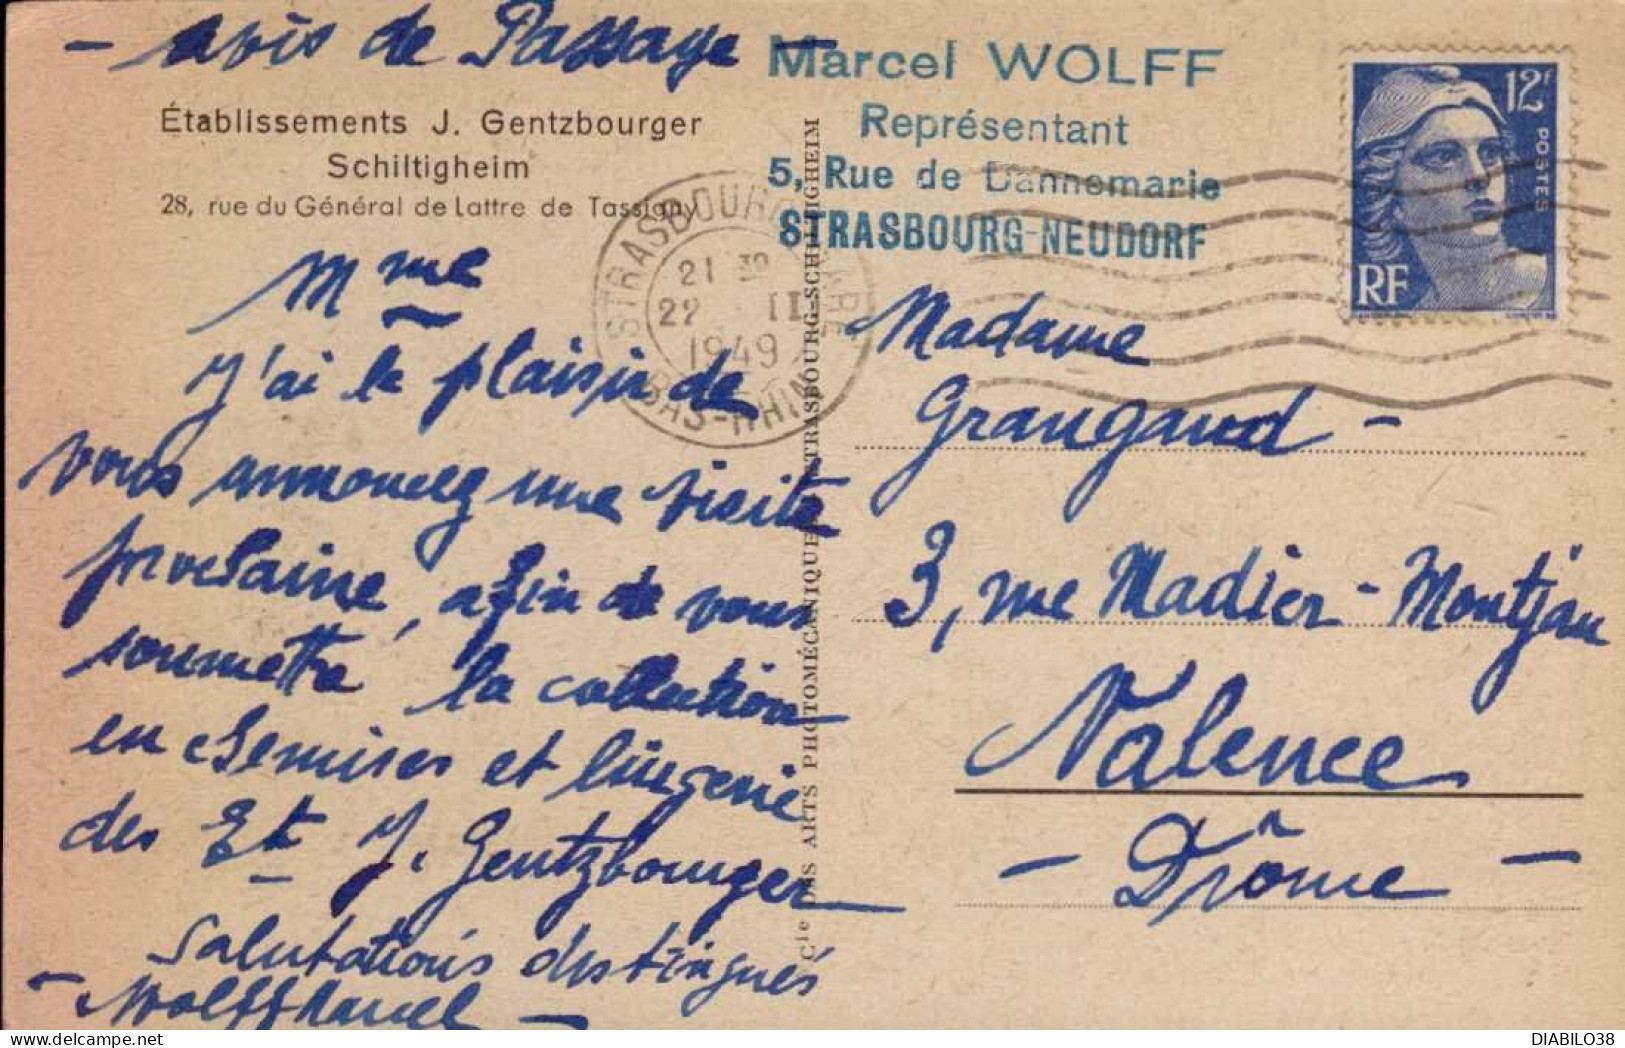 - Avis de Passage -
Établissements J. Gentzbourger
Schiltigheim
28, rue du Général de Lattre de Tassigny
Mme
J'ai le plaisir de
vous annoncez une visite
prochaine, afin de vous
soumettre la collection
en chemises et lingerie
des Ets J. Gentzbourger
Salutations distingués
- Wolff Marcel -
Marcel WOLFF
Représentant
5, Rue de Dannemarie
STRASBOURG-NEUDORF
STRASBOURG GARE
21 30
22 II
1949
BAS-RHIN
12F
POSTES
RF
Cie DES ARTS PHOTOMÉCANIQUES STRASBOURG-SCHILTIGHEIM
Madame
Graugaud -
3, rue Madier-Montjau
Valence
- Drôme -
DIABILO38